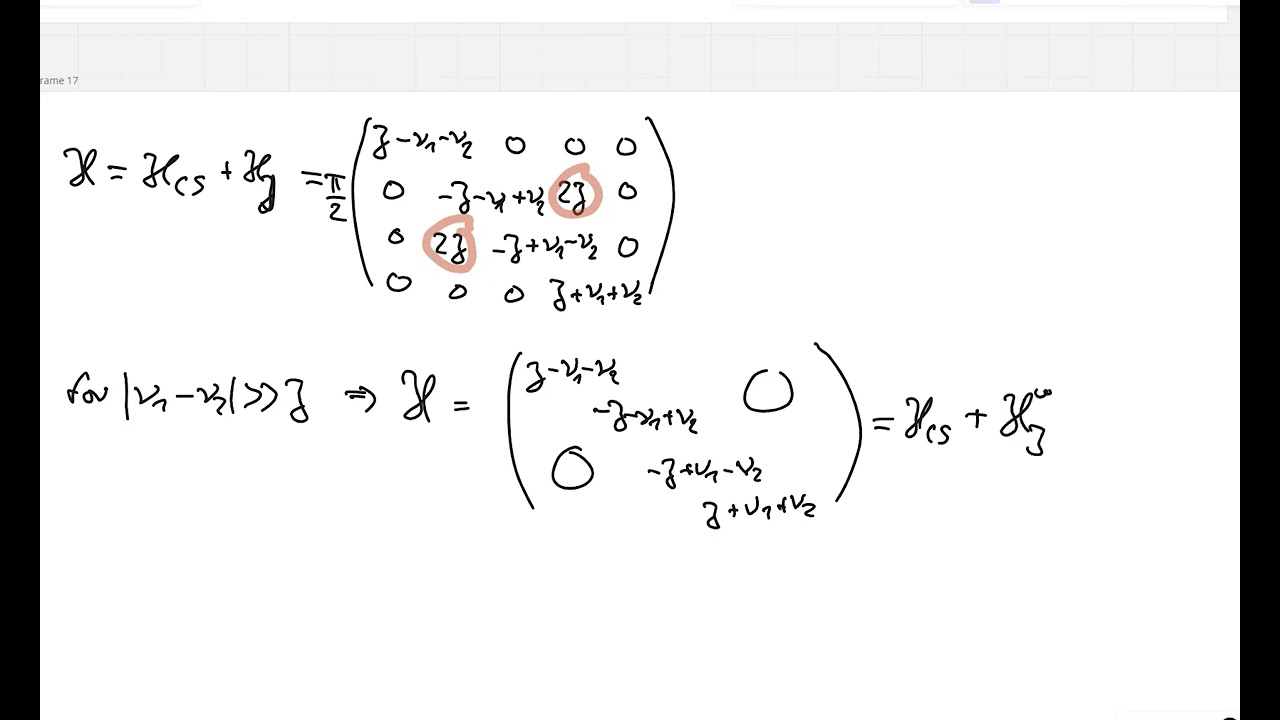 rame 17
ℋ = ℋ_CS + ℋ_J = π/2 ( J-ν₁-ν₂ 0 0 0
0 -J-ν₁+ν₂ 2J 0
0 2J -J+ν₁-ν₂ 0
0 0 0 J+ν₁+ν₂ )
for |ν₁-ν₂| >> J ⇒ ℋ = ( J-ν₁-ν₂ 0
-J-ν₁+ν₂
0 -J+ν₁-ν₂
J+ν₁+ν₂ ) = ℋ_CS + ℋ_J^ω